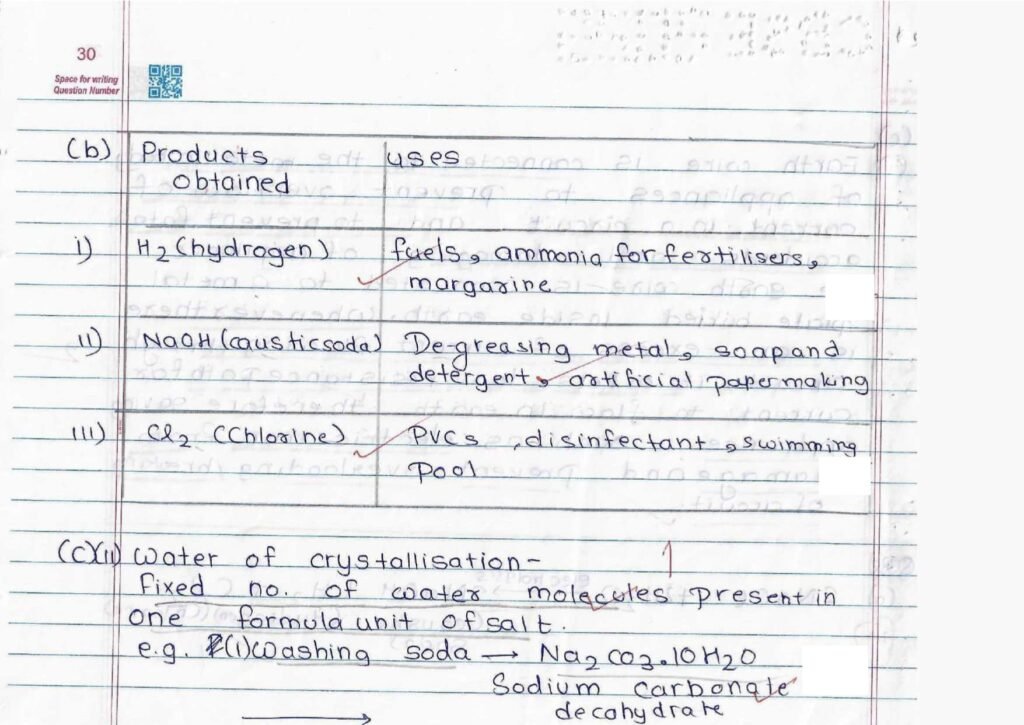 30
Space for writing
Question Number
(b) Products uses
obtained
i) H2 (hydrogen) fuels, ammonia for fertilisers,
margarine
ii) NaOH (caustic soda) De-greasing metal, soap and
detergent, artificial paper making
iii) Cl2 (Chlorine) PVCs, disinfectant, swimming
pool
(c)(ii) Water of crystallisation-
fixed no. of water molecules present in
one formula unit of salt.
e.g. (i) Washing soda → Na2CO3.10H2O
Sodium carbonate
decahydrate